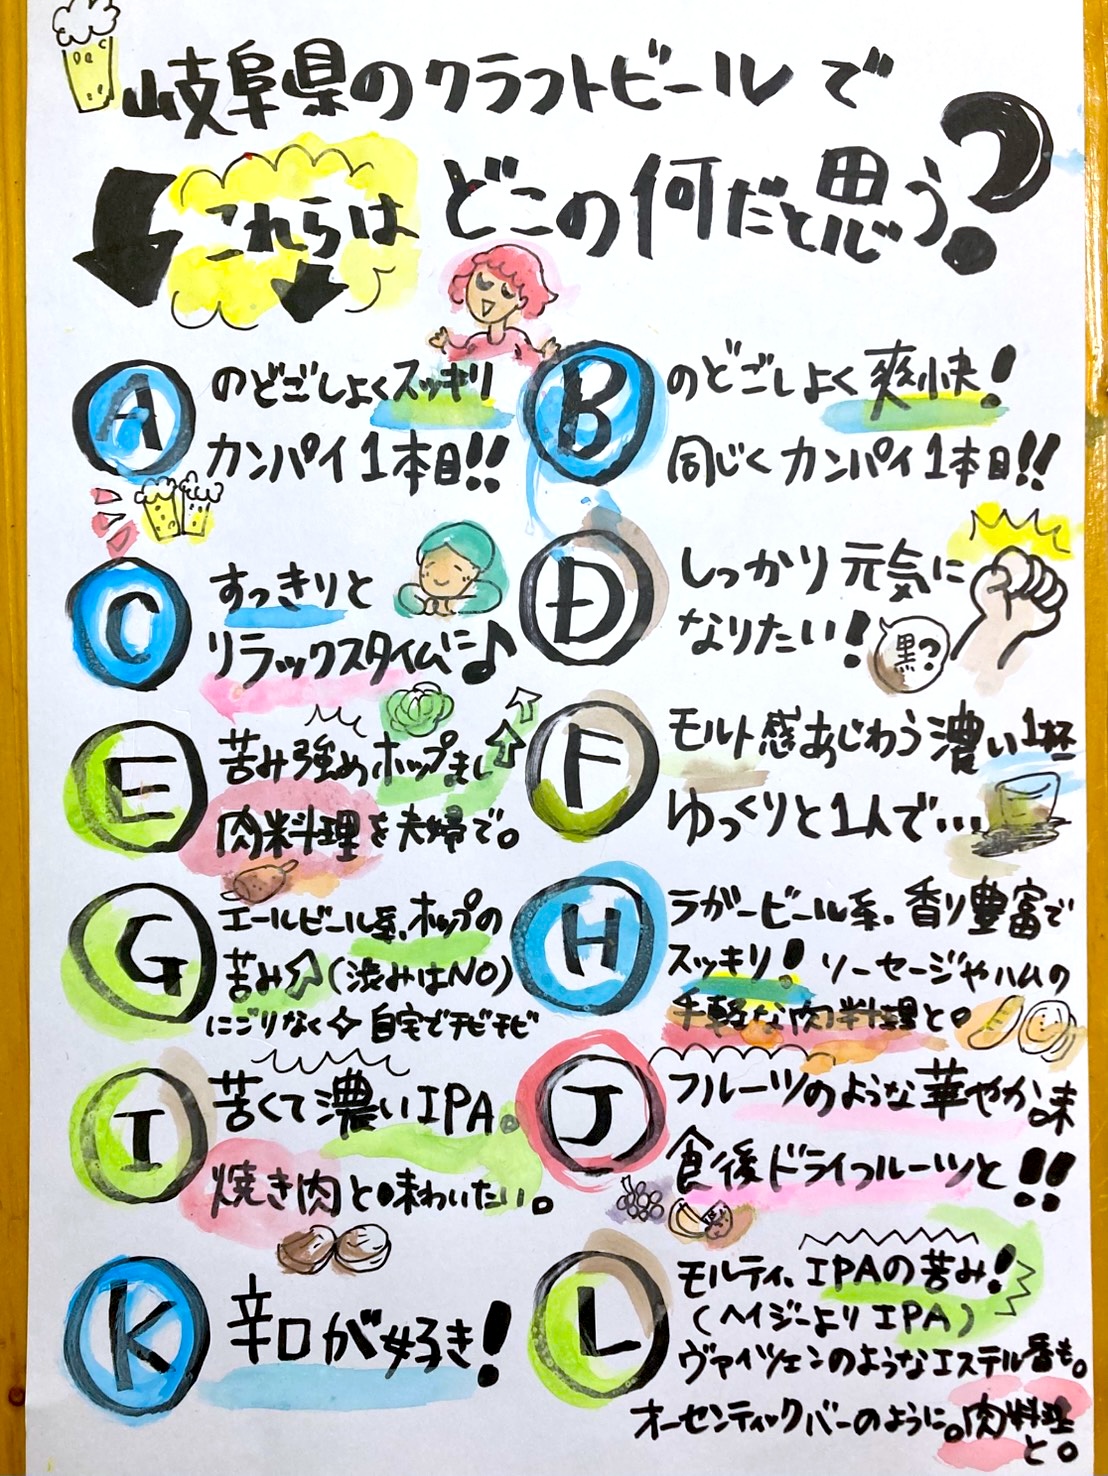 岐阜県のクラフトビールで
これらは どこの何だと思う?
A のどごしよくスッキリ
カンパイ1本目!!
B のどごしよく爽快!
同じくカンパイ1本目!!
C すっきりと
リラックスタイムに♪
D しっかり元気に
なりたい!
黒?
E 苦み強めホップまし
肉料理を夫婦で。
F モルト感あじわう濃い1杯
ゆっくりと1人で...
G エールビール系、ホップの
苦み(渋みはNO)
にごりなく 自宅でチビチビ
H ラガービール系、香り豊富で
スッキリ!ソーセージやハムの
手軽な肉料理と。
I 苦くて濃いIPA。
焼き肉と味わいたい。
J フルーツのような華やか味
食後ドライフルーツと!!
K 辛口が好き!
L モルティ、IPAの苦み!
(ヘイジーよりIPA)
ヴァイツェンのようなエステル香も。
オーセンティックバーのように。肉料理
と。